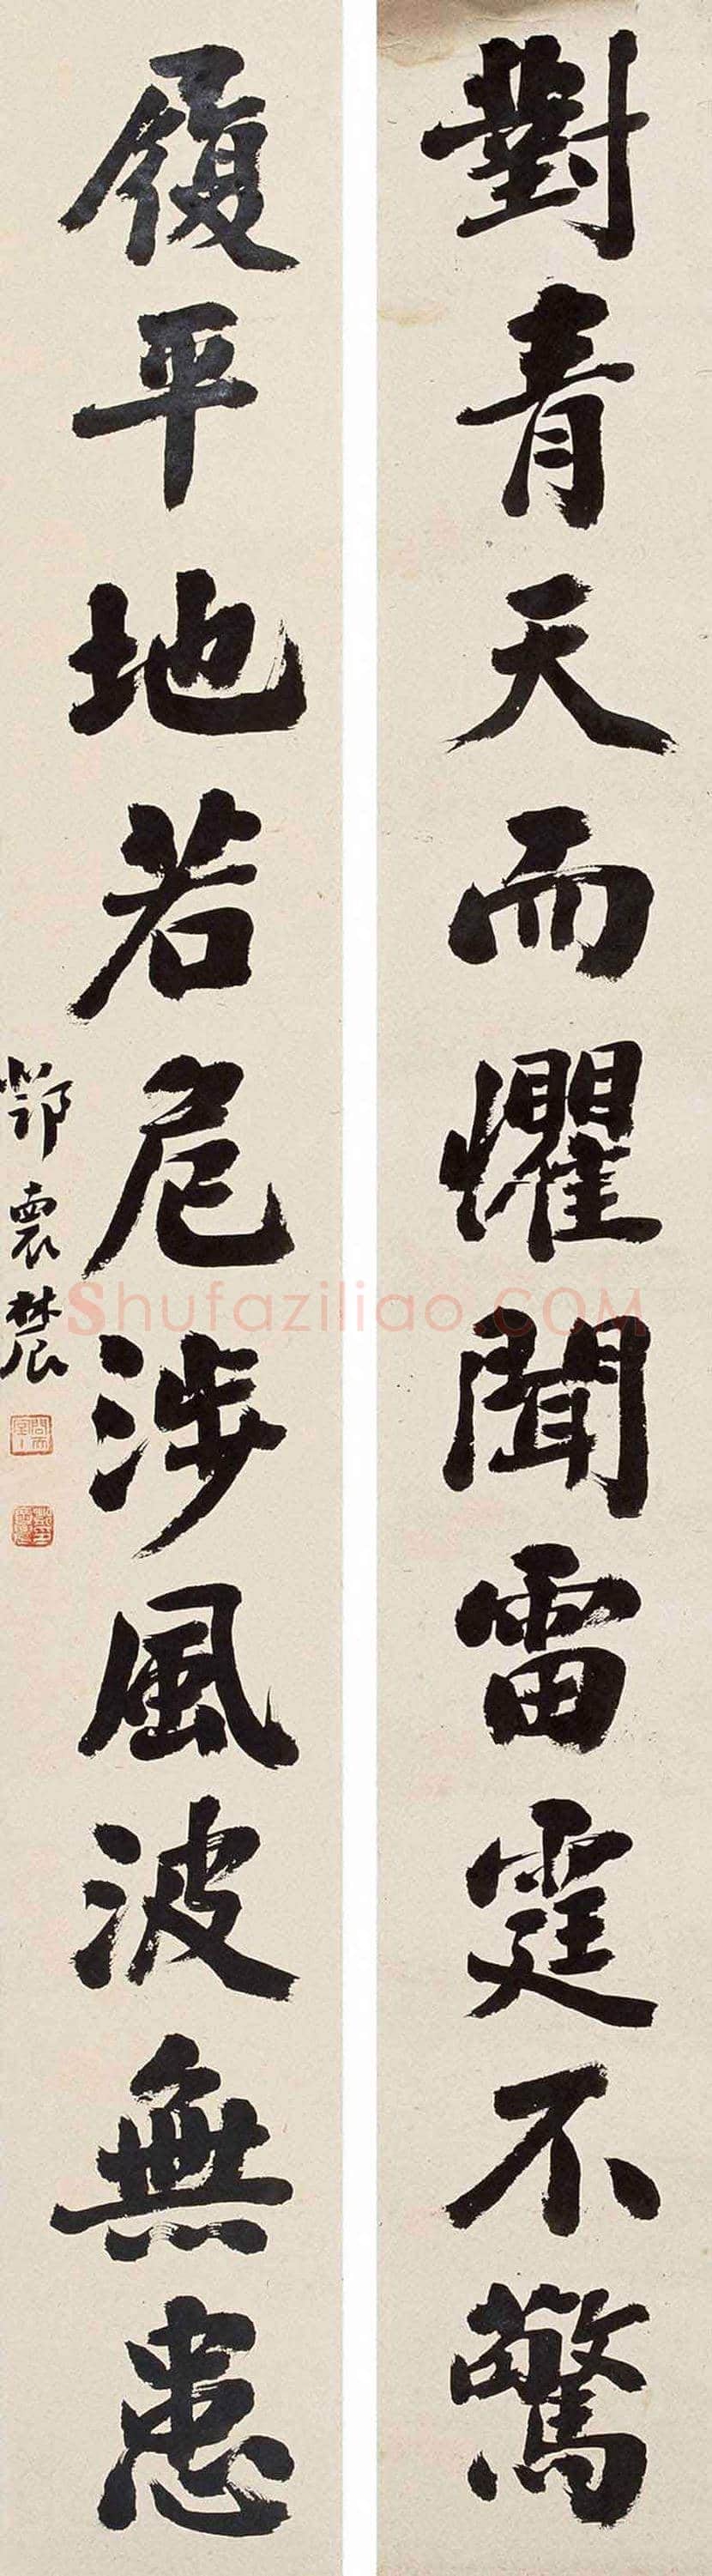 對青天而懼聞雷霆不驚
履平地若危涉風波無患
Shufaziliao.COM